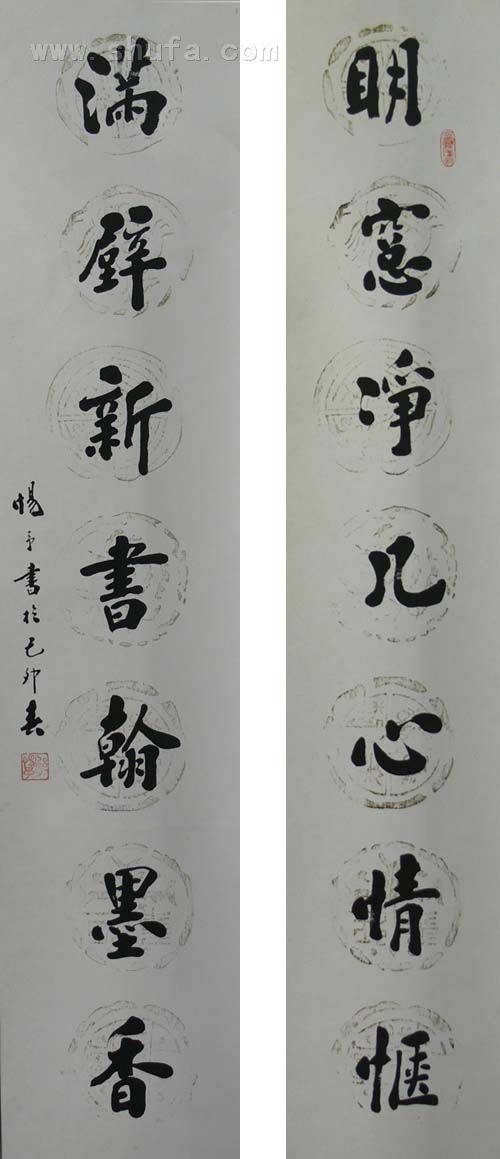 明窻淨几心情惬
满壁新書翰墨香
惕予書於己卯春
www.shufa.com